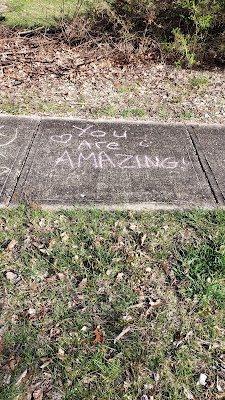 You
are
AMAZING!